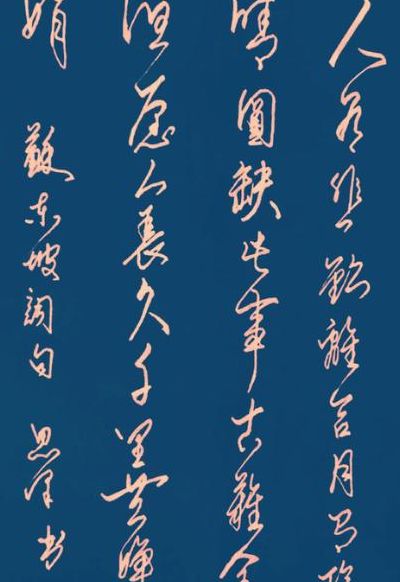 人有悲歡離合月有陰
晴圓缺此事古難全
但愿人長久千里共嬋
娟 蘇东坡詞句 思 书